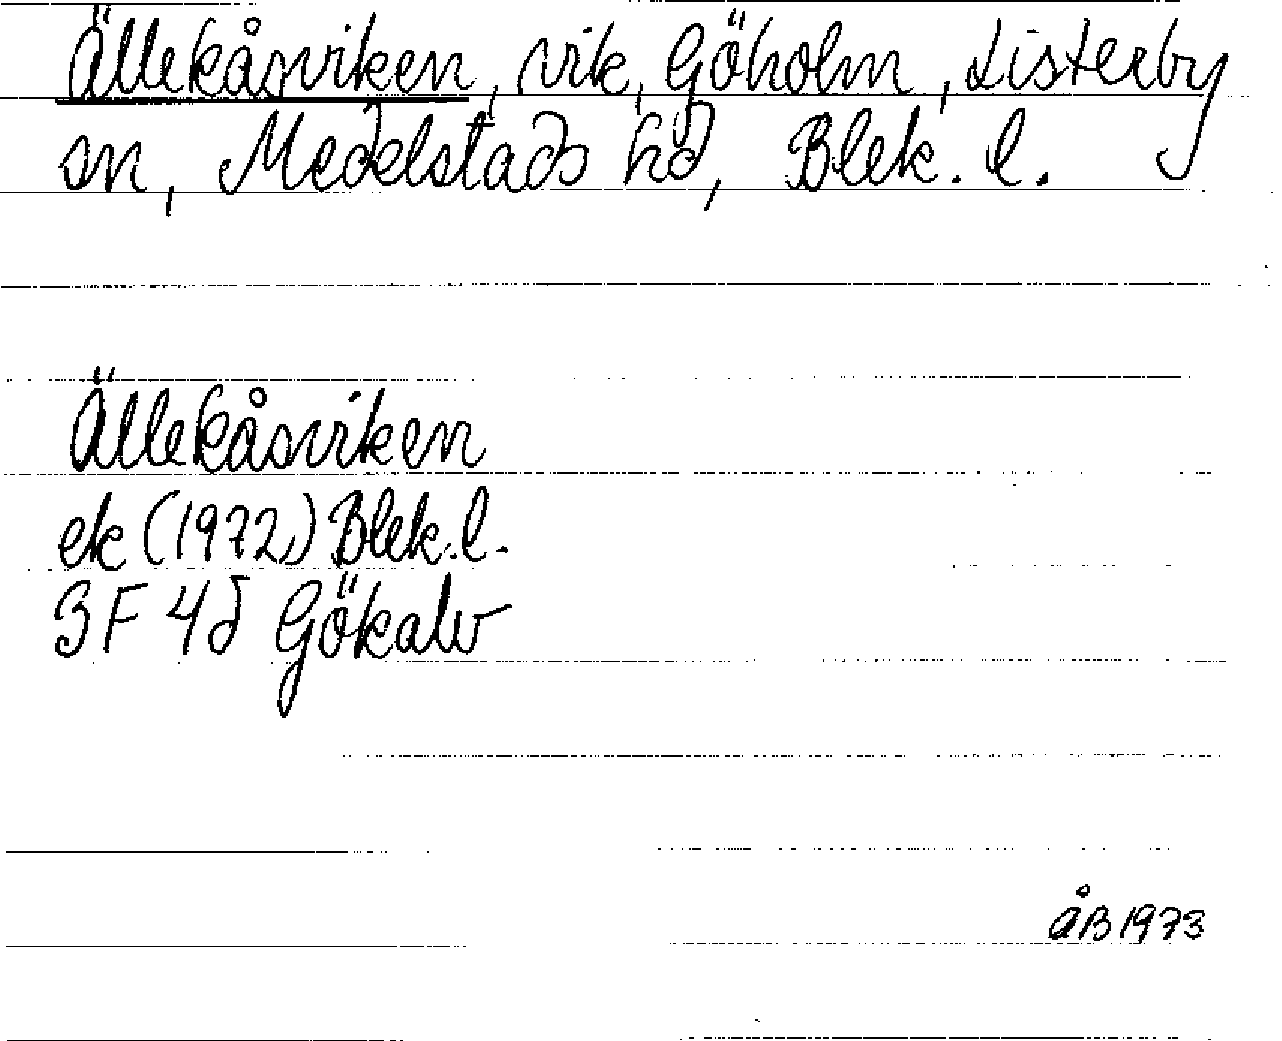 Ällekåsviken, vik, Göholm, Listerby
sn, Medelstads hd, Blek. l.
Ällekåsviken
ek (1972) Blek. l.
3F 4d Gökalv
ÅB 1973